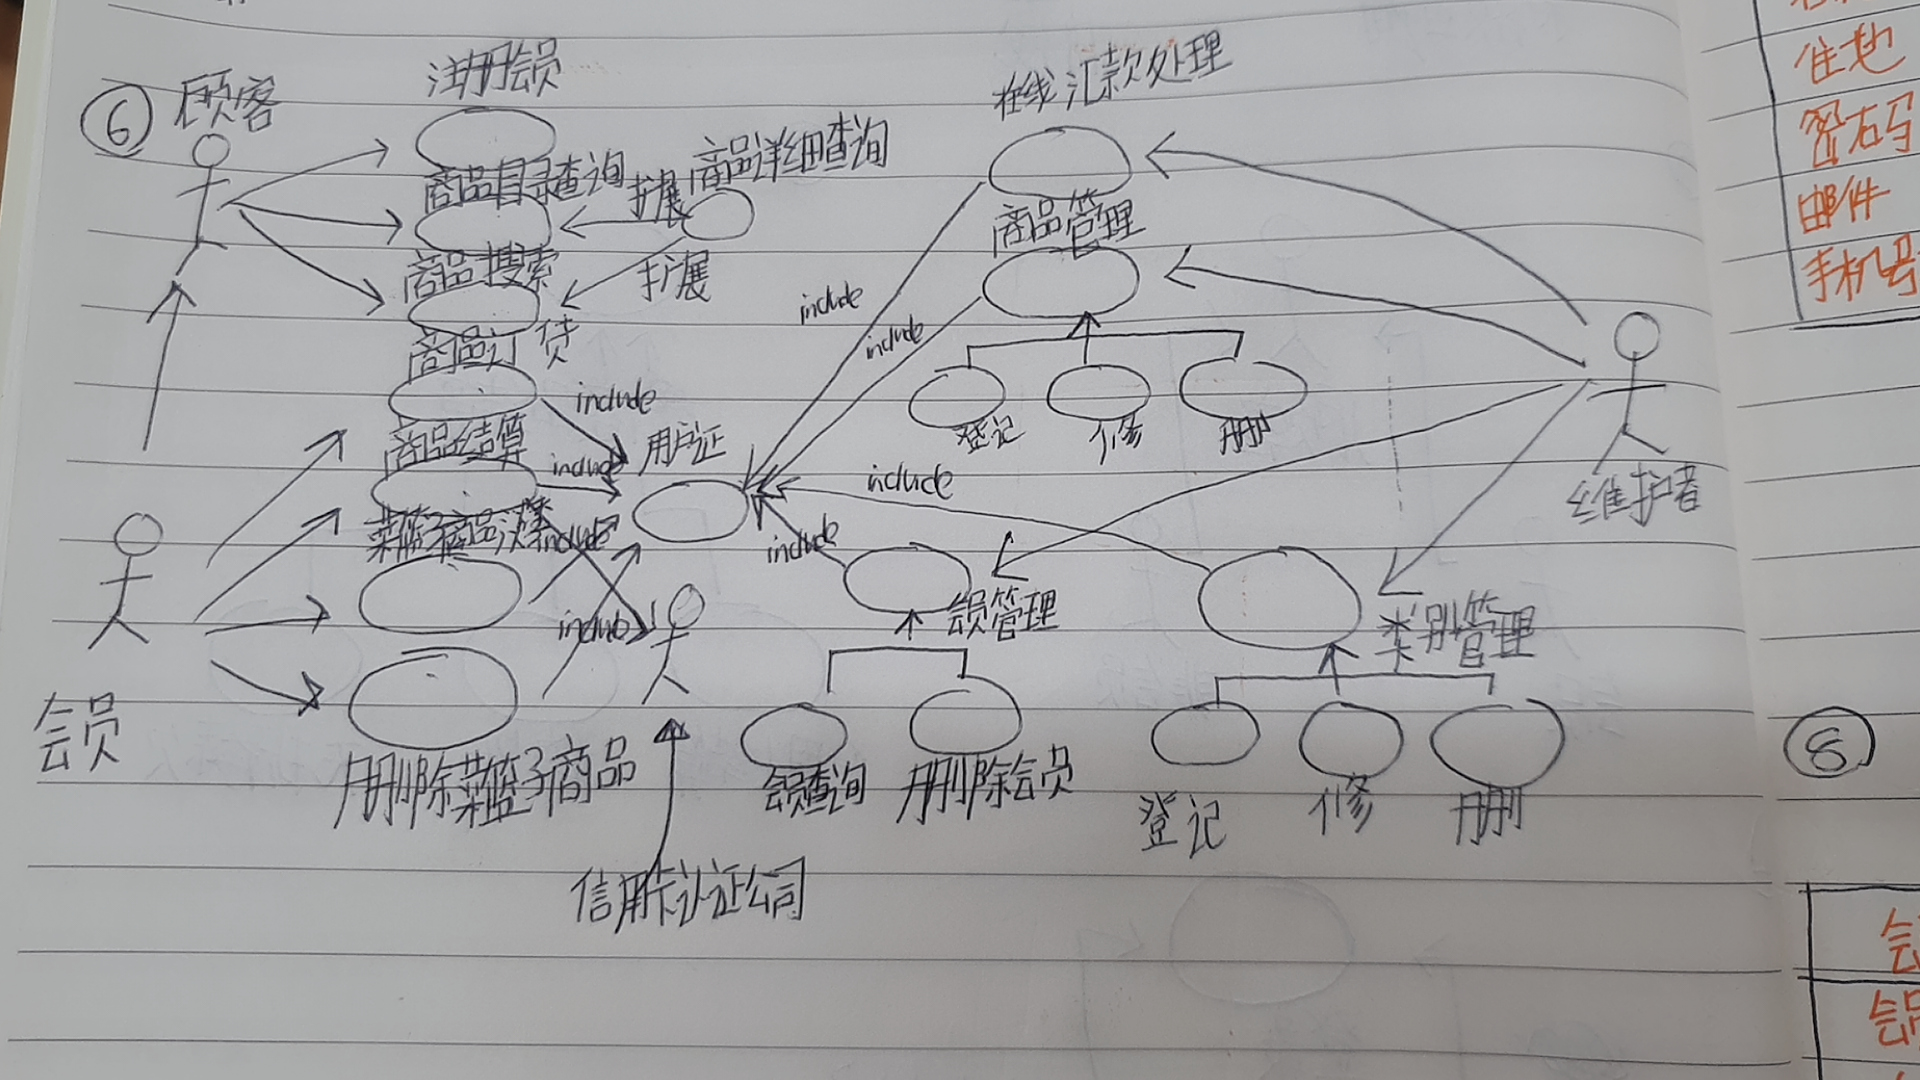 ⑥
顾客
注册会员
商品目录查询
扩展
商品详细查询
商品搜索
扩展
商品订货
include
商品结算
include
用户证
include
include
删除菜篮子商品
会员
信用卡认证公司
在线汇款处理
商品管理
include
include
登记
修
删
include
include
会员管理
会员查询
删除会员
维护者
类别管理
登记
修
删
住地
密码
邮件
手机号
⑧
会
会员